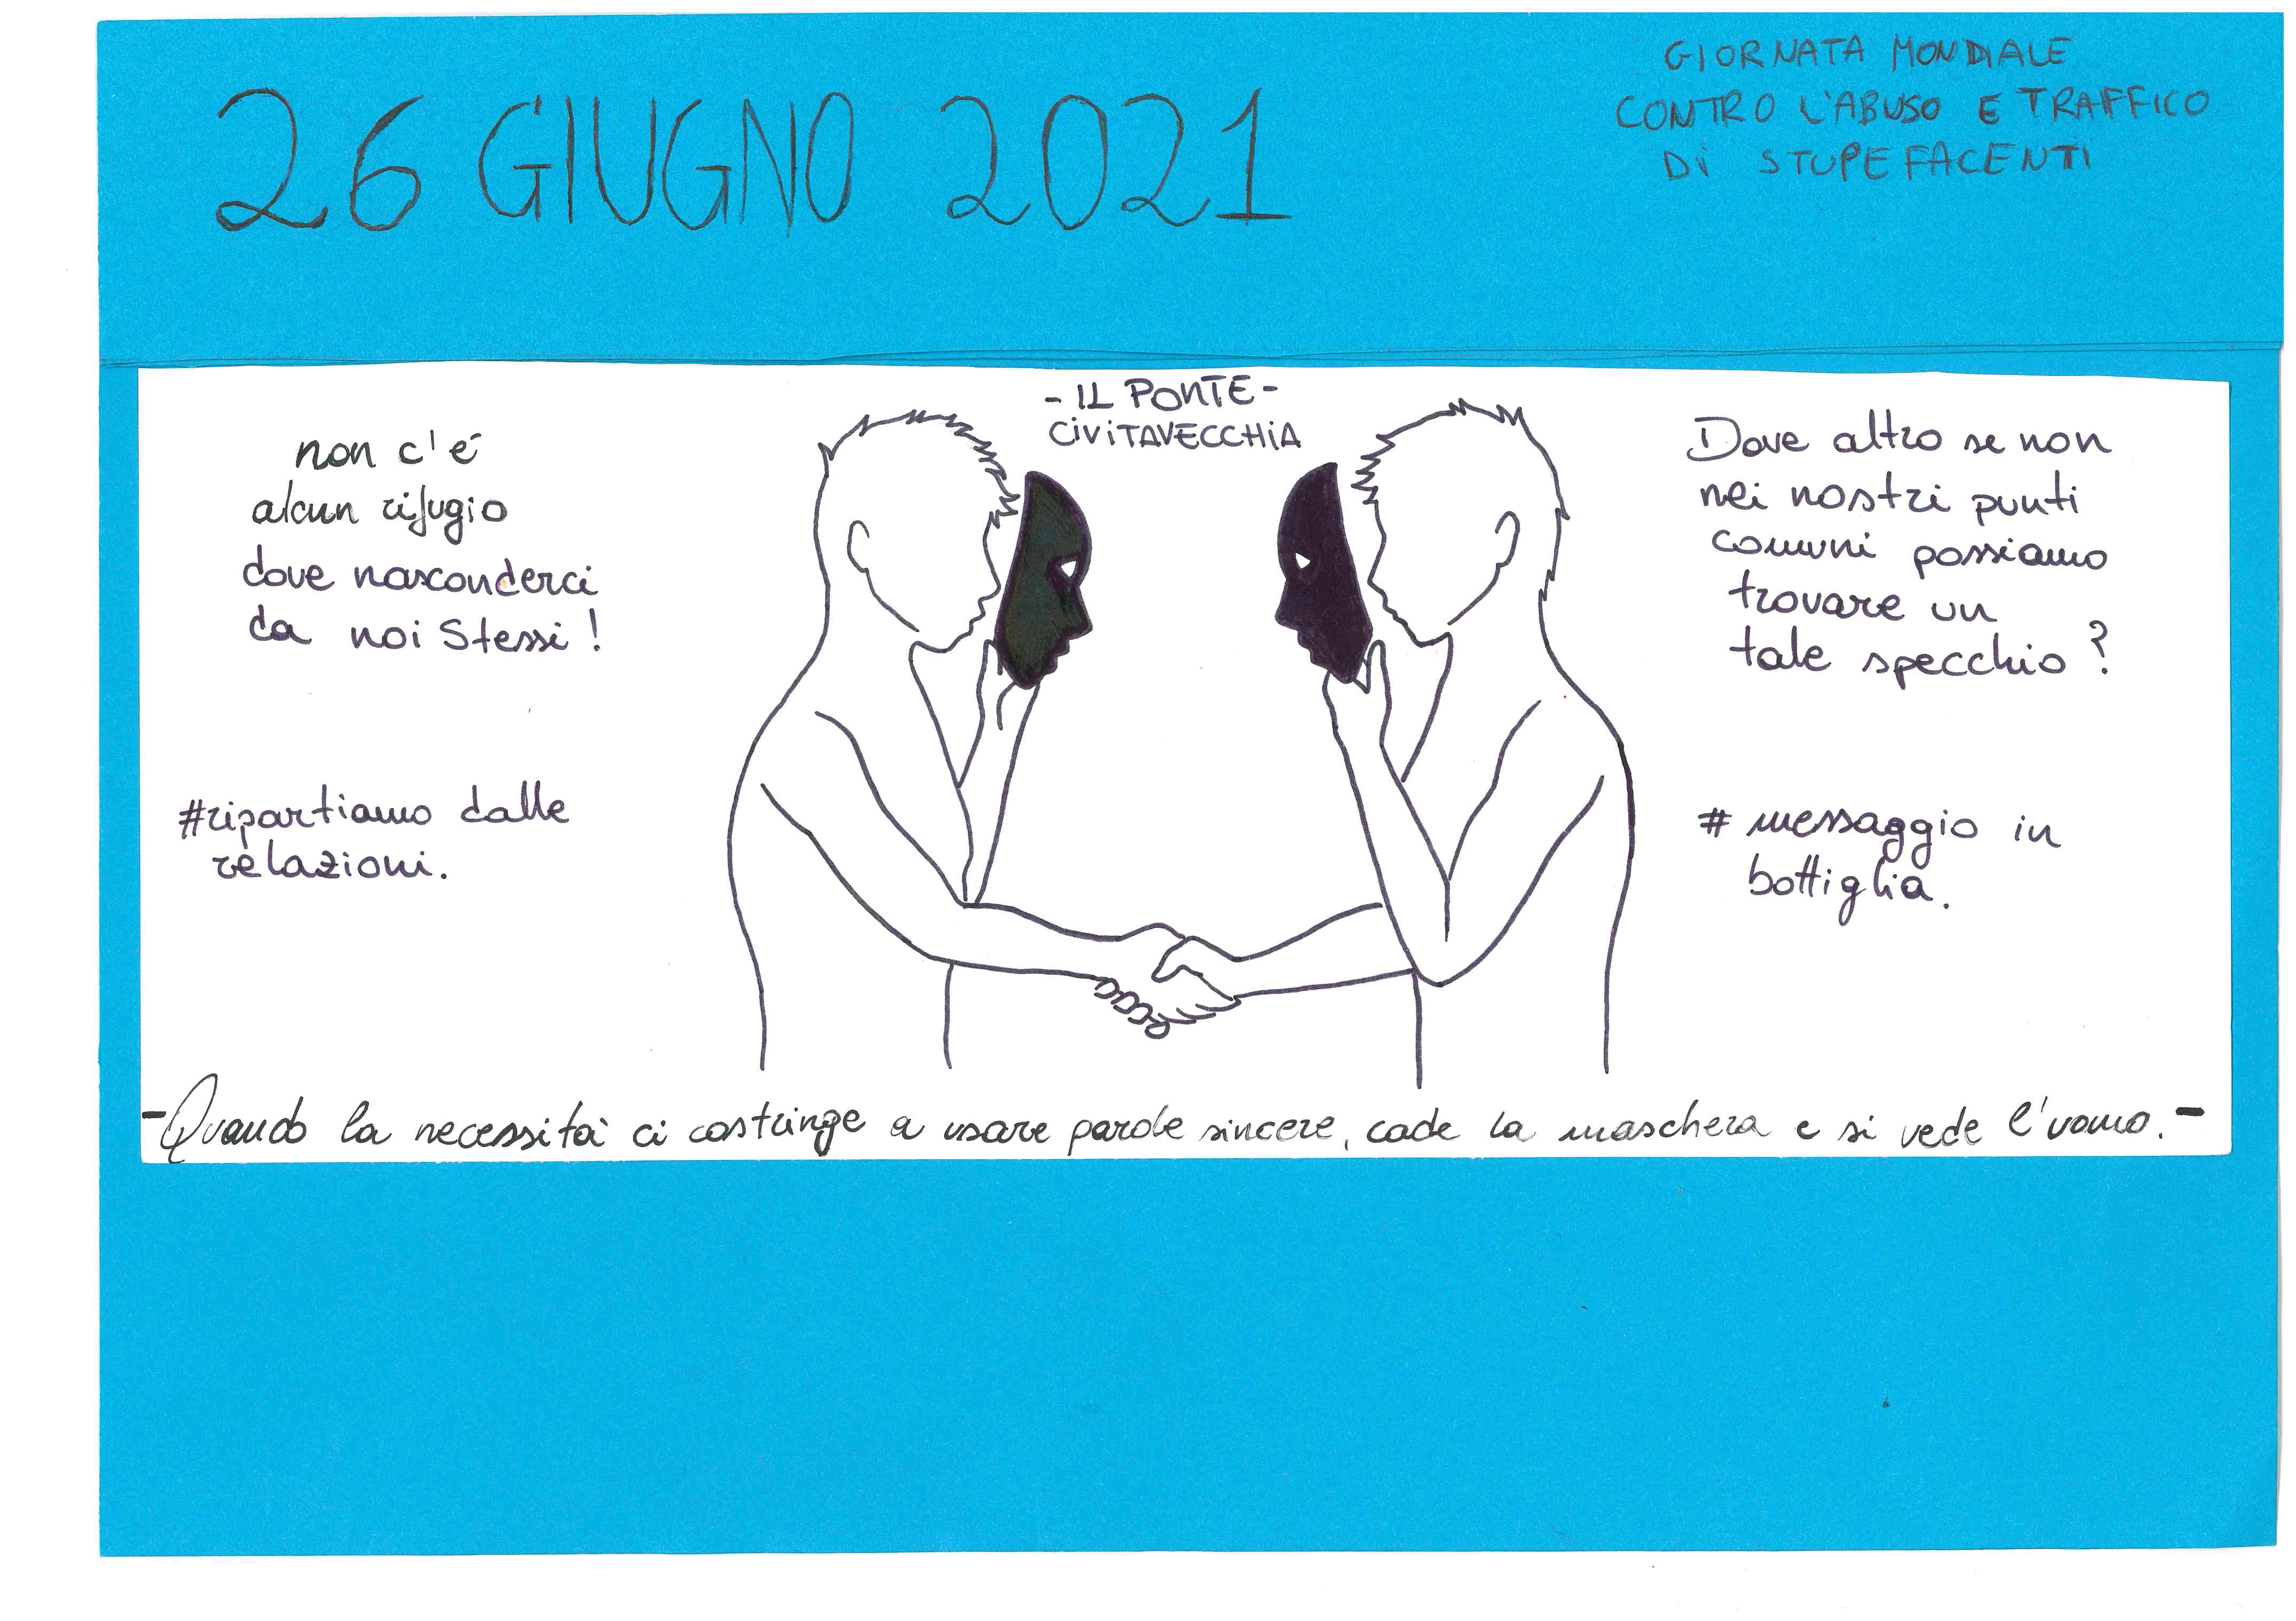 26 GIUGNO 2021
GIORNATA MONDIALE
CONTRO L'ABUSO E TRAFFICO
Di STUPEFACENTI
- IL PONTE -
CiViTAVECCHiA
non c'é
alcun rifugio
dove nasconderci
da noi Stessi!
#ripartiamo dalle
relazioni.
Dove altro se non
nei nostri punti
comuni possiamo
trovare un
tale specchio?
# messaggio in
bottiglia.
- Quando la necessità ci costringe a usare parole sincere, cade la maschera e si vede l'uomo. -